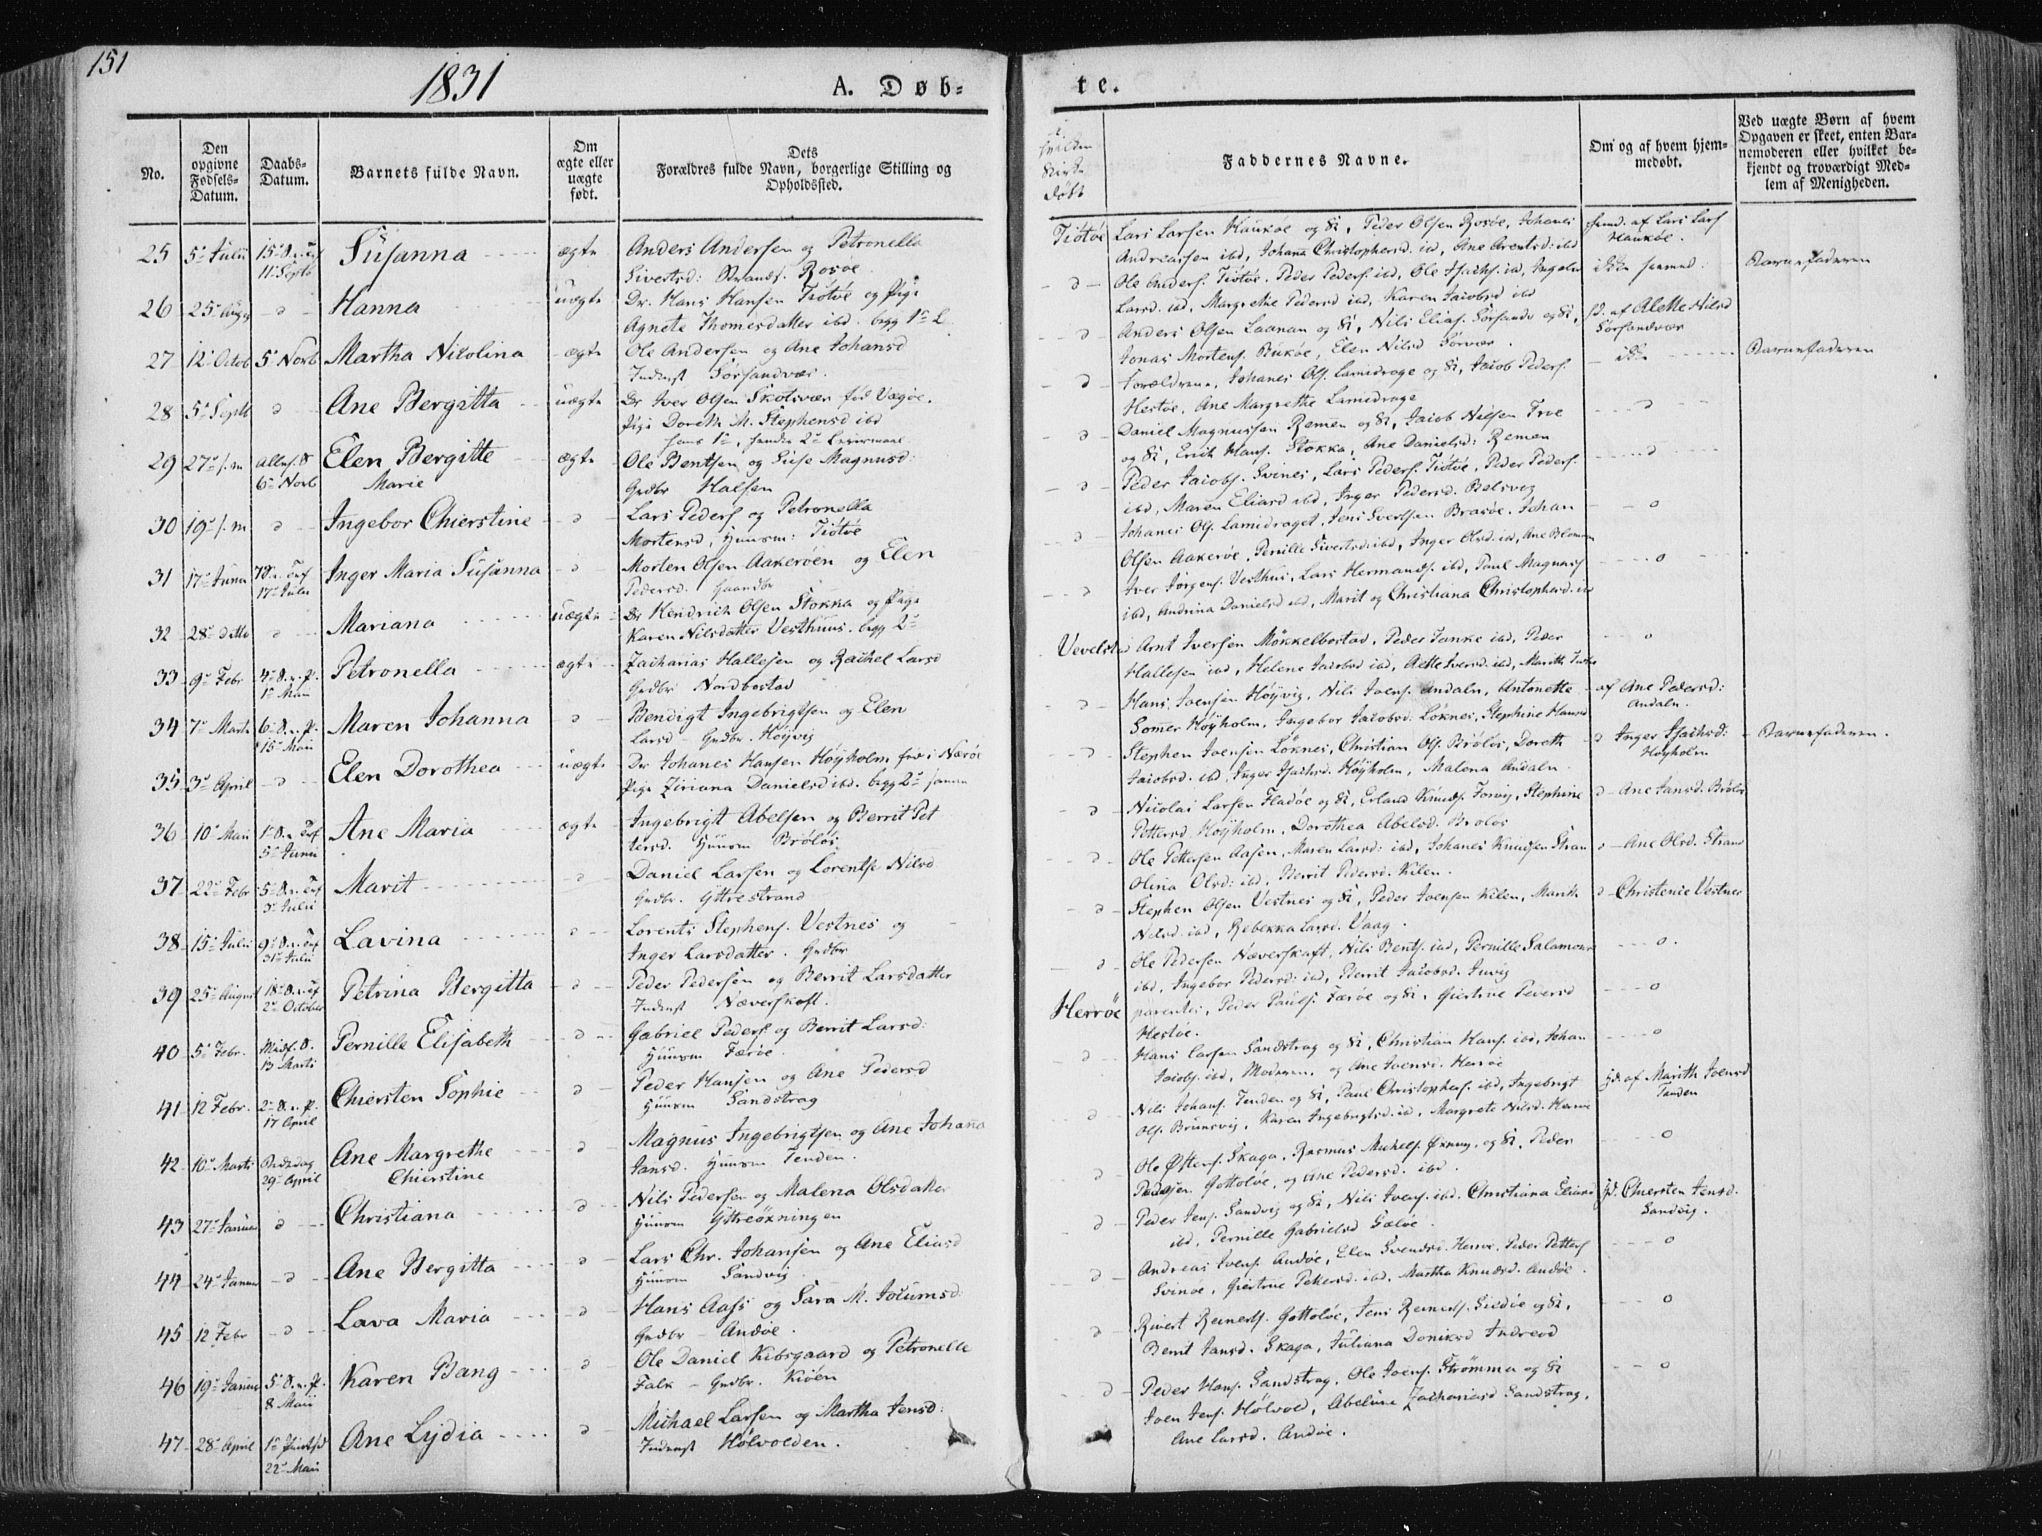 151
1831
A. Døb-
te.
No.
Den opgivne Fødsels-Datum.
Daabs-Datum.
Barnets fulde Navn.
Om ægte eller uægte født.
Dets Forældres fulde Navn, borgerlige Stilling og Opholdssted.
hvilken Kirke døbt
Faddernes Navne.
Om og af hvem hjemmedøbt.
Ved uægte Børn af hvem Opgaven er skeet, enten Barnemoderen eller hvilket bekjendt og troværdigt Medlem af Menigheden.
25 5 Julii Susanna ægte Anders Andersen og Petronella
11 Septb Sivertsd: Rosøe.
Tiøtøe Lars Larsen Haukøe og K, Peder Olsen Rosøe, Johanes
Andreassen ibd, Johanna Christophersd. ibd, Ane Arentsd: ibd
af Lars Lars Haukøe.
26 25 Aug Hanna uægte Dr. Hans Hansen Tiøtøe og Pige
Agnete Thomesdatter ibd. begg 1 L
Ole Anders. Tiøtøe, Peder Peders. ibd, Ole
Larsd. ibd, Margrethe Pedersd ibd, Karen Jacobsd ibd
Barnefaderen
27 12 Octob 5 Novb Martha Nicolina ægte Ole Andersen og Ane Johansd
Inderst Sørsandvær.
Anders Olsen Laanan og K, Nils Elias. Sørsandv og K,
Jonas Mortens. Bukøe, Elen Nilsd Sørvær.
af Alette Nilsd Sørsandvær
28 5 Septb Ane Bergitta uægte Dr Iver Olsen Skotsvær fød Vægøe.
Pige Doreth M. Stephensd ibd
hans 1, hendes 2 Leiermaal
Forældrene, Johanes Ols. Lamidrage og K, Jacob Peders.
Hestøe, Ane Margrethe Lamidrage
Barnefaderen
29 27 s.m Alleh. D
6 Novb Elen Bergitte Marie ægte Ole Bentsen og Magnusd:
Grdbr Halsen
Daniel Magnussen Remen og K, Jacob Nilsen Troe
og K, Erik Hans. Stokka, Ane Danielsd: Remen
30 19 s.m Ingebor Chierstine Lars Peders og Petronella
Mortensd, Huusm: Tiøtøe
Peder Jacobs. Svines, Lars Peders. Tiøtøe, Peder Peders.
ibd, Maren Eliasd ibd, Inger Pedersd. Belsvig
31 17 Junii 17 Julii Inger Maria Susanna Morten Olsen Aakerøen og Elen
Pedersd.
Johanes Ols. Lamidraget, Jens Svertsen Brasøe, Johan
Olsen Aakerøe, Pernille Sivertsd: ibd, Inger Olsd: ibd, Ane
32 28 ditto Mariana uægte Dr Hendrich Olsen Stokka og Pige
Karen Nilsdatter Vesthuus. begg 2
Iver Jørgens. Vesthus, Lars Hermands. ibd, Paul Magnuss
ibd, Andrina Danielsd ibd, Marit og Christiana Christophersd. ibd
33 9 Febr 1 Mai Petronella ægte Zacharias Hallesen og Rachel Larsd
Grdbr Nordbostad
Vevelsta Arnt Iversen Møkkelbostad, Peder Tanke ibd, Peder
Hallesen ibd, Helene Jacobsd ibd, Aette Iversd. ibd, Marith
34 7 Marti 15 Mai Maren Johanna Bendigt Ingebrigtsen og Elen
Larsd - Grdbr. Høyvig
Hans Joensen Høyvig, Nils Joens. Andaln, Antonette
Somer Høyholm, Ingebor Jacobsd. Løknes, Stephine Hansd
af Ane Pedersd: Andaln.
35 3 April Elen Dorothea uægte Dr Johanes Hansen Høyholm
Pige Ziriana Danielsd ibd. begg 2
Stephen Joensen Løknes, Christian Ols. Brøløs, Doreth
Jacobsd. ibd, Inger Isachsd. Høyholm, Malena Andaln
Inger Isachsd: Høyholm
Barnefaderen.
36 10 Mai 5 Junii Ane Maria ægte Ingebrigt Abelsen og Berrit Pet
tersd. Huusm Brøløs
Nicolai Larsen Fladøe og K, Erland Knuds. Forvig, Stephine
Pettersd Høyholm, Dorothea Abelsd: Broløs
Ane Jansd. Brøløs
37 22 Febr 3 Julii Marit Daniel Larsen og Lorentse Nilsd
Grdbr. Yttrestrand
Ole Pettersen Aasen, Maren Larsd: ibd, Johanes Knudsen Stran
Olina Olsd: ibd, Berrit Pedersd. Kilen.
Ane Olsd. Strand
38 15 Julii 31 Julii Lavina Lorents Stephens. Vestnes og
Inger Larsdatter. Grdbr
Stephen Olsen Vestnes og K, Peder Joensen Kilen, Marith
Nilsd. ibd, Rebekka Larsd. Vaag.
Christenie Vestnes
39 25 August 2 October Petrina Bergitta Peder Pedersen og Berrit Larsdatter
Inderst Næverskoft.
Ole Pedersen Næverskaft, Nils Bents. ibd, Pernille Salamons
ibd, Ingebor Pedersd: ibd, Berrit Jacobsd.
40 5 Febr. 13 Marti Pernille Elisabeth Gabriel Peders: og Berrit Larsd:
Huusm Færøe
Herrøe parentes, Peder Pauls. Færøe og K, Giertrue Pedersd
Hestøe.
41 12 Febr. 17 April Chiersten Sophie Peder Hansen og Ane Pedersd
Huusm Sandstrag
Hans Larsen Sandstrag og K, Christian Hans. ibd, Johan
Jacobs. ibd, Moderen, og Ane Joensd. Herrøe
42 10 Marti Bededag
29 April Ane Margrethe Chierstine Magnus Ingebrigtsen og Ane Johana
Jansd. Huusm Tenden.
Nils Johans. Tenden og K, Paul Christophers. ibd, Ingebrigt
Ols. Brunsvig, Karen Ingebrigtsd. ibd, Margrete Nilsd. Herrøe
af Marith Joensd Tenden
43 27 Januar Christiana Nils Pedersen og Malena Olsdatter
Huusm Yttreøxningen
Ole Østens. Skaga, Rasmus Michels. Øxning, og K, Peder
Pedersen Gottoløe, og Ane Pedersd. ibd.
44 24 Januar Ane Bergitta Lars Chr. Johansen og Ane Eliasd
Huusm Sandvig
Peder Jens. Sandvig og K, Nils Ivers. ibd. Christiana Eliasd
ibd. Pernille Gabrielsd Sæløe.
Chiersten Jensd. Sandvig.
45 12 Febr Lava Maria Hans Aass og Sara M. Jocumsd:
Grdbr - Andøe.
Andreas Ivers. Andøe, Elen Svendsd. Herrøe. Peder Petters
Svinøe, Giertrue Pettersd. ibd. Martha Knudsd. Andøe.
46 19 Januar 8 Mai Karen Bang Ole Daniel Kibsgaard og Petronelle
Falk - Grdbr. Kiøen
Rivert Reinerts. Gottoløe, Jens Reinerts. Sildøe og K,
Berrit Jansd. Skaga, Juliana Doniksd Indreød
47 28 April 1 Pintsed
22 Mai Ane Lydia Michael Larsen og Martha Jensd:
Inderst Hølvolden.
Peder Hans. Sandstrag, Ole Joens. Strømma og K
Joen Jens. Hølvold, Abelone Zachariasd Sandstrag,
Ane Larsd. Andøe.